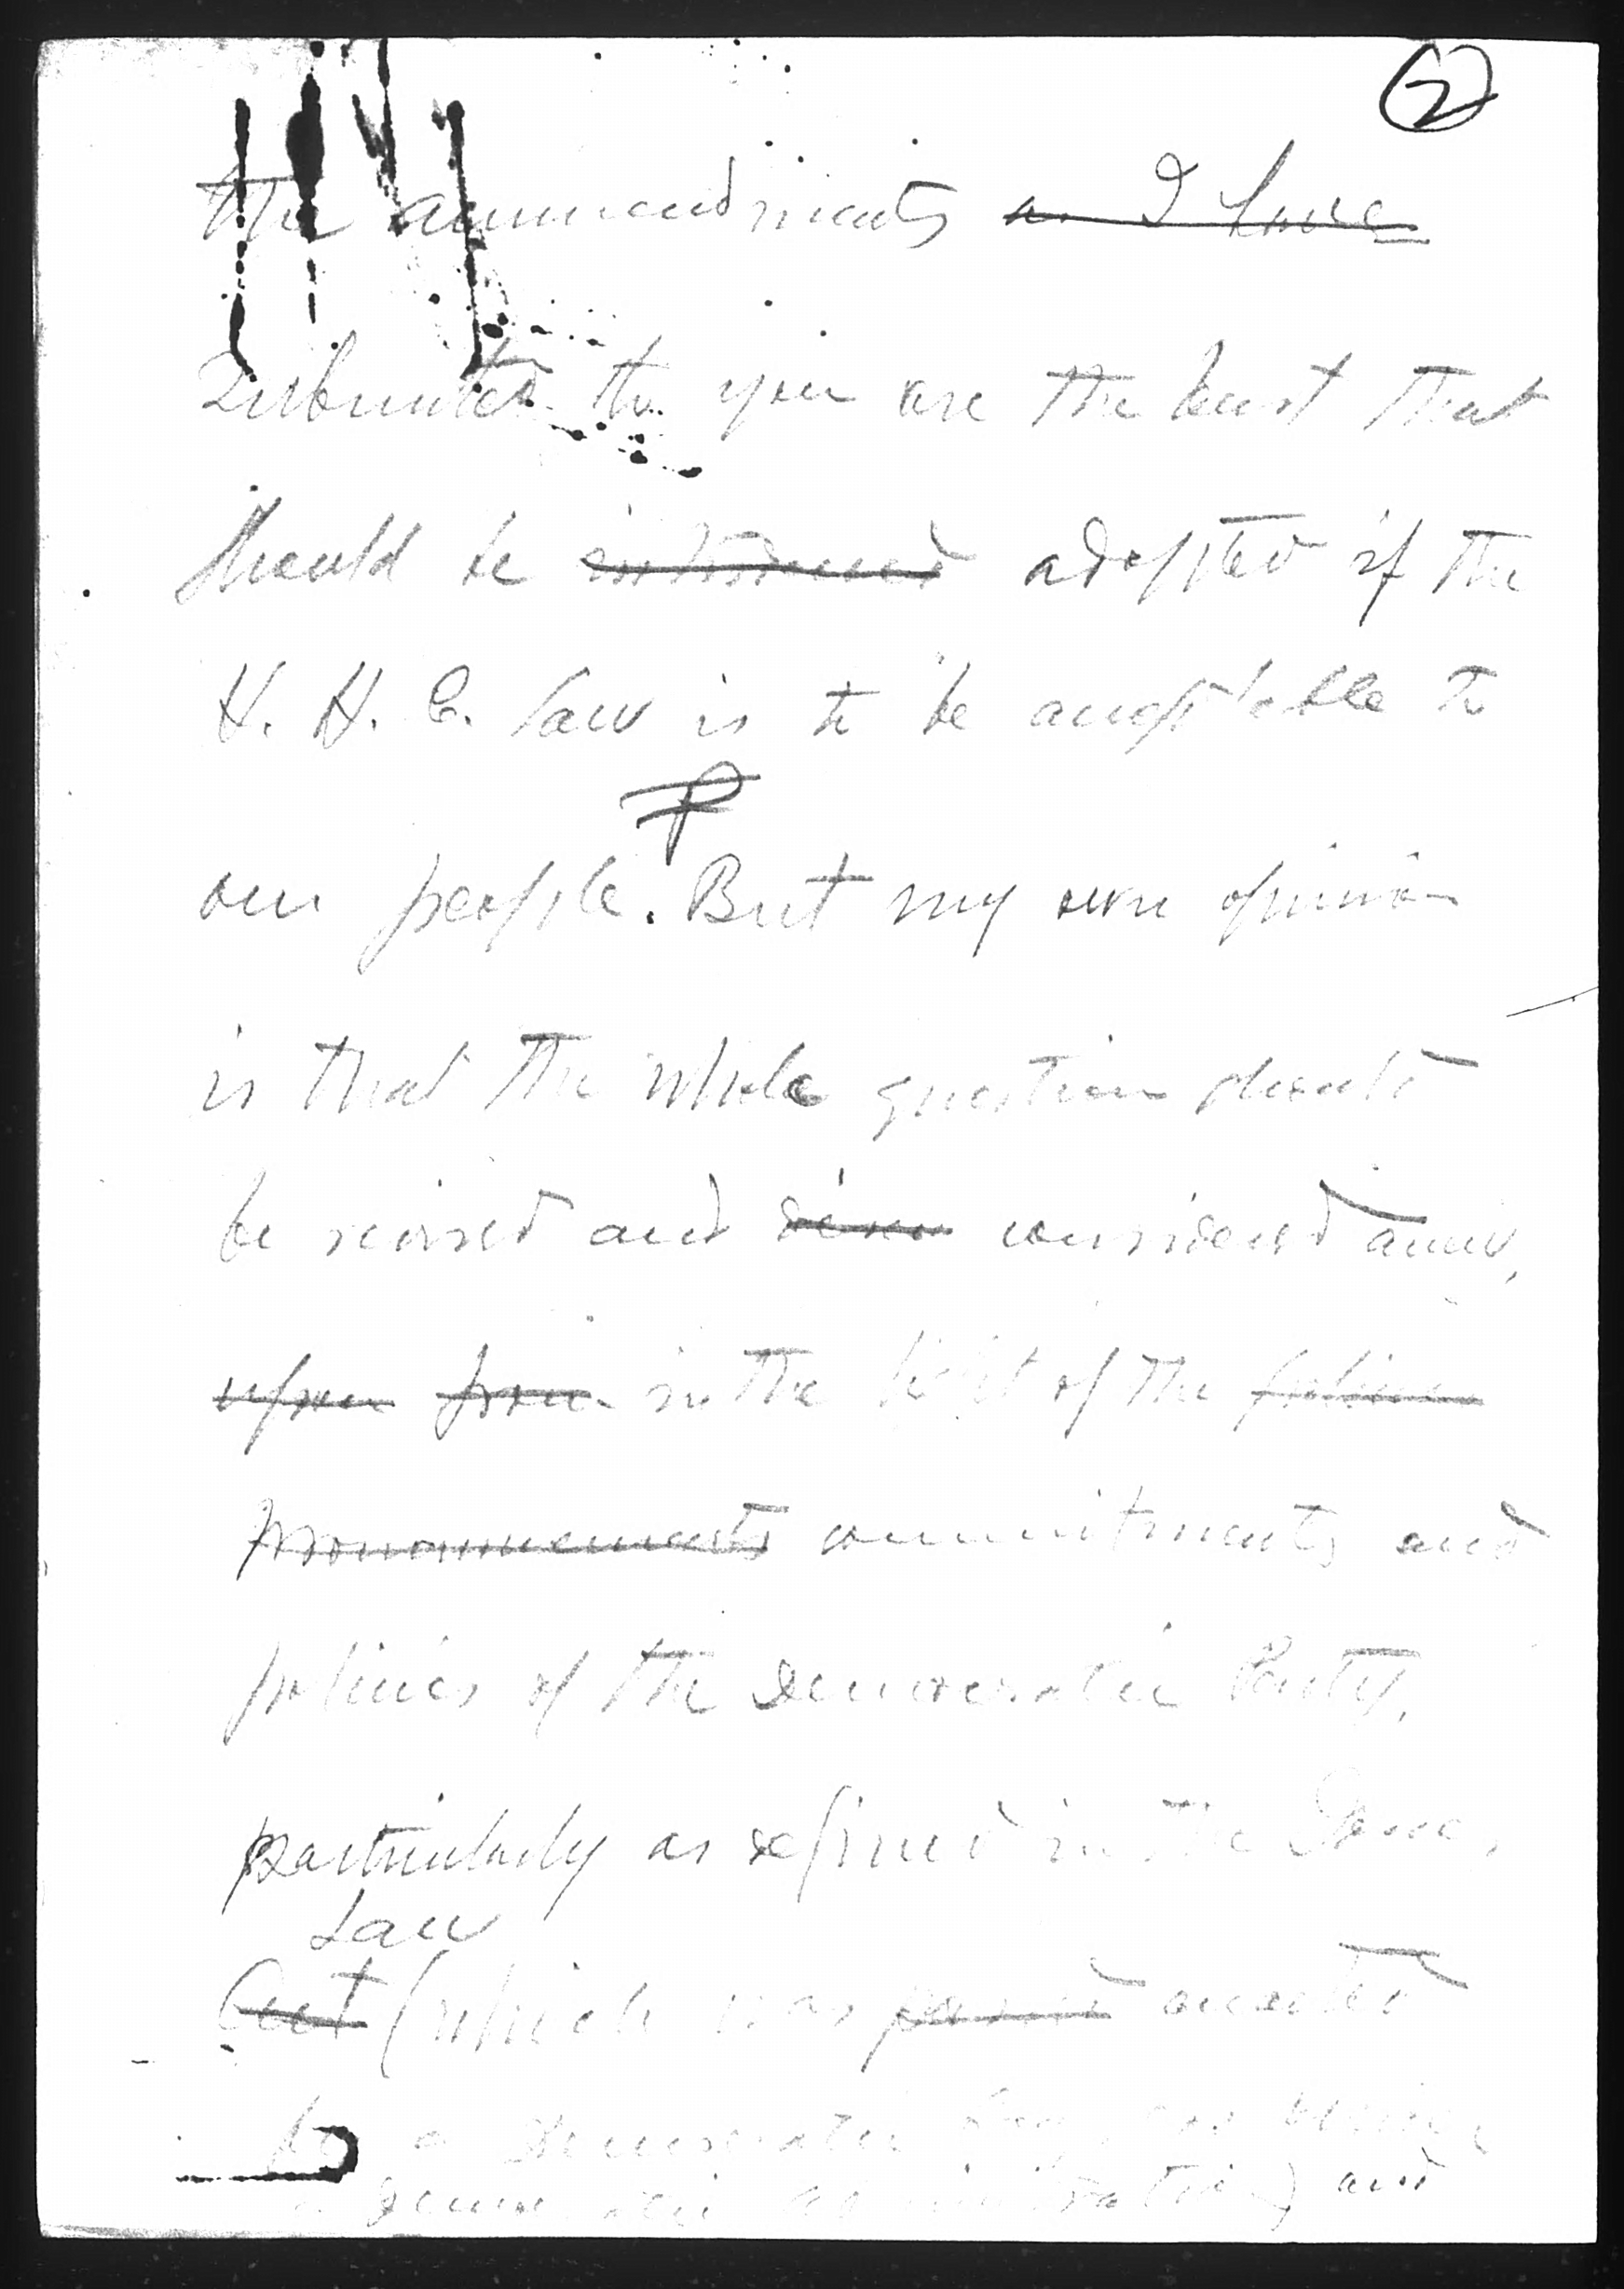 2
the ammendments as I have
Submitted to you are the least that
should be adopted if the
H. H. C. law is to be acceptable to
our people. But my own opinion
is that the whole question should
be revised and considered anew,
upon from in the light of the
pronouncements commitments and
policies of the Democratic Party,
particularly as defined in the Jones
Law
Act (which was passed enacted
by a Democratic
a Democratic administration) and